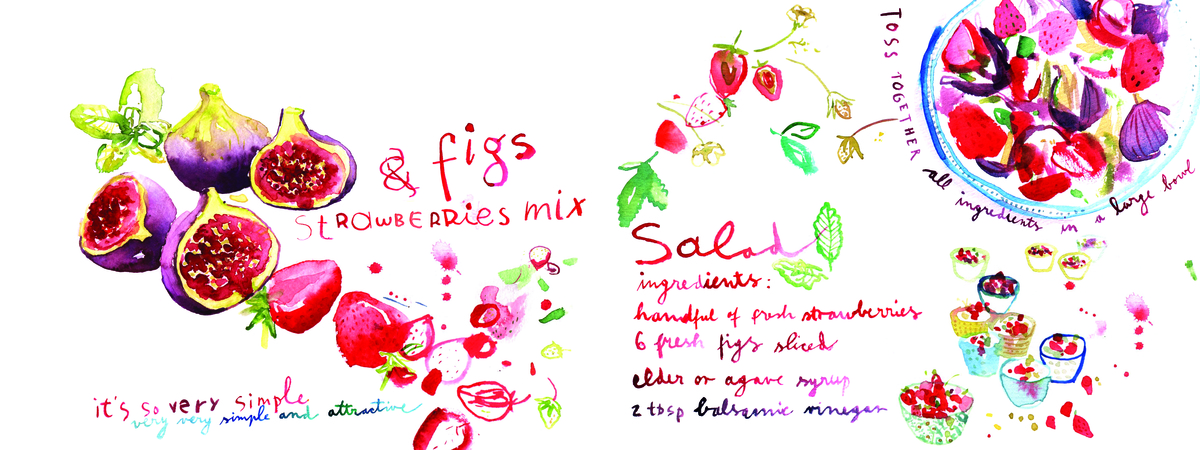 & figs
strawberries mix
it's so very simple
very very simple and attractive
Salad
ingredients:
handful of fresh strawberries
6 fresh figs sliced
elder or agave syrup
2 tbsp balsamic vinegar
Toss together
all ingredients in a large bowl